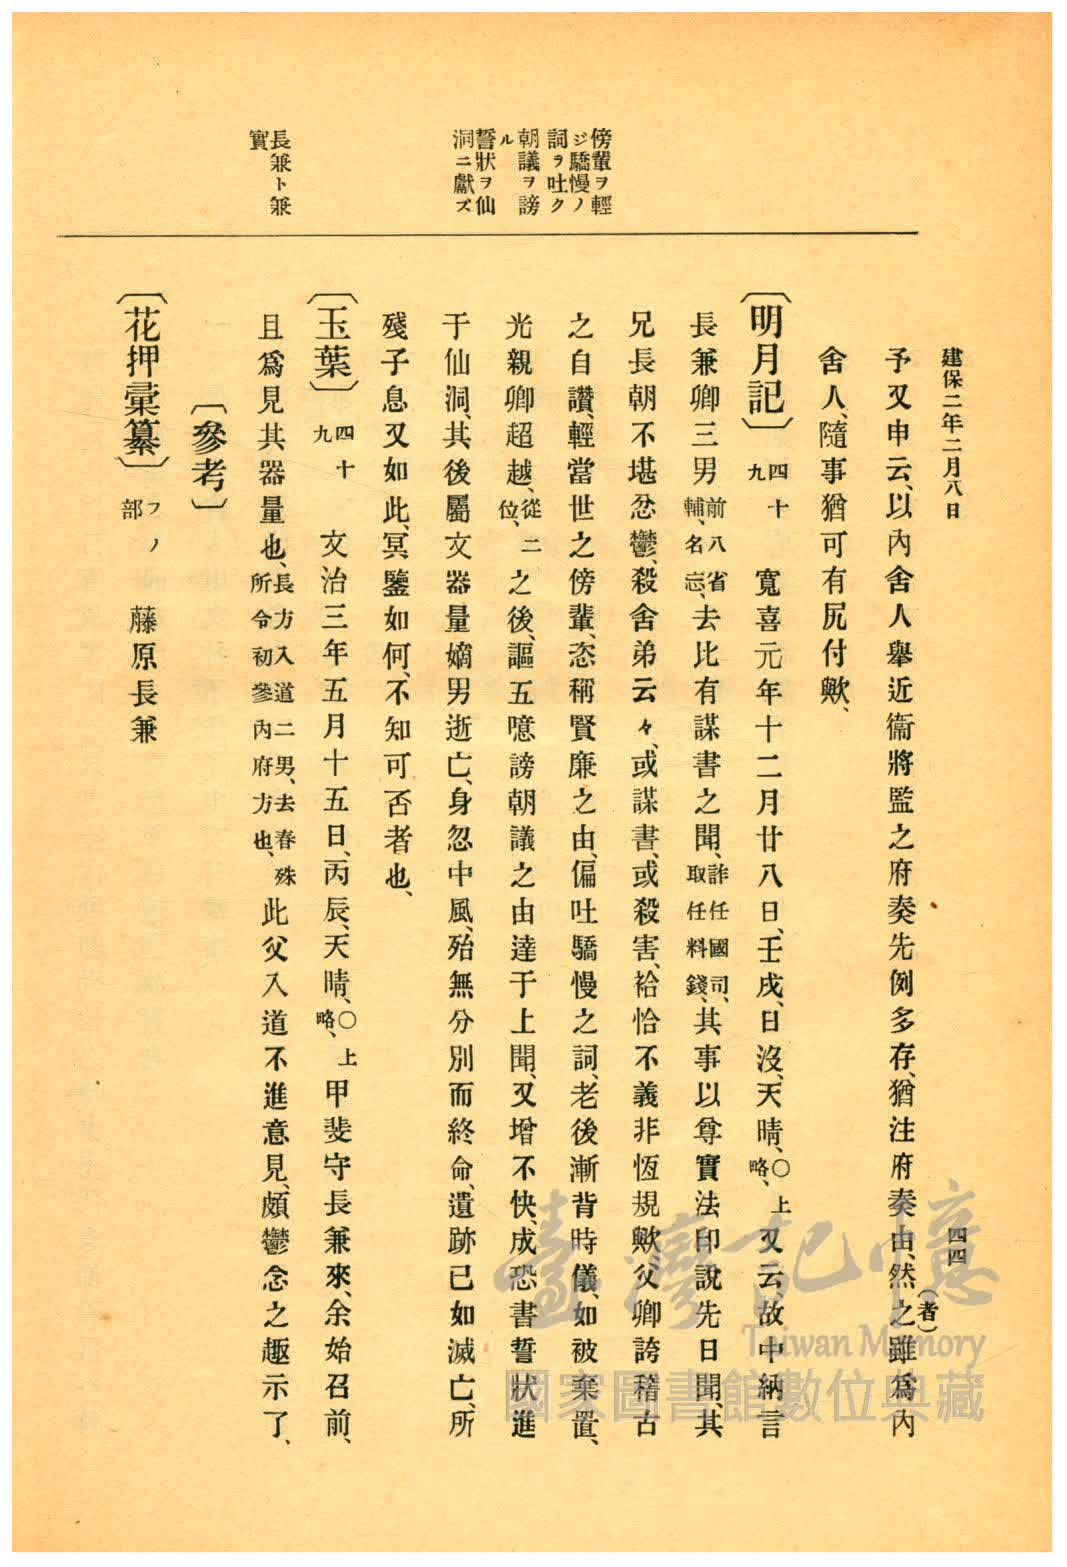 建保二年二月八日
四四
予又申云、以內舍人舉近衞將監之府奏先例多存、猶注府奏由、然之(者)雖爲內
舍人、隨事猶可有尻付歟、
〔明月記〕四十九 寬喜元年十二月廿八日、壬戌、日沒、天晴、〇上略、又云、故中納言
長兼卿三男前八省輔、名忘、去比有謀書之聞、詐任國司、取任料錢、其事以尊實法印說先日聞、其
兄長朝不堪忿鬱、殺舍弟云々、或謀書、或殺害、袷恰不義非恆規歟、父卿誇稽古
之自讚、輕當世之傍輩、恣稱賢廉之由、偏吐驕慢之詞、老後漸背時儀、如被棄置、
光親卿超越、從二位、之後、謳五噫謗朝議之由達于上聞、又增不快、成恐書誓狀進
于仙洞、其後屬文器量嫡男逝亡、身忽中風、殆無分別而終命、遺跡已如滅亡、所
殘子息又如此、冥鑒如何、不知可否者也、
〔玉葉〕四十九 文治三年五月十五日、丙辰、天晴、〇上略、甲斐守長兼來、余始召前、
且爲見其器量也、長方入道二男、去春殊所令初參內府方也、此父入道不進意見、頗鬱念之趣示了、
〔參考〕
〔花押彙纂〕フノ部 藤原長兼
傍輩ヲ輕
ジ驕慢ノ
詞ヲ吐ク
朝議ヲ謗
ル
誓狀ヲ仙
洞ニ獻ズ
長兼ト兼
實
臺灣記憶
Taiwan Memory
國家圖書館數位典藏